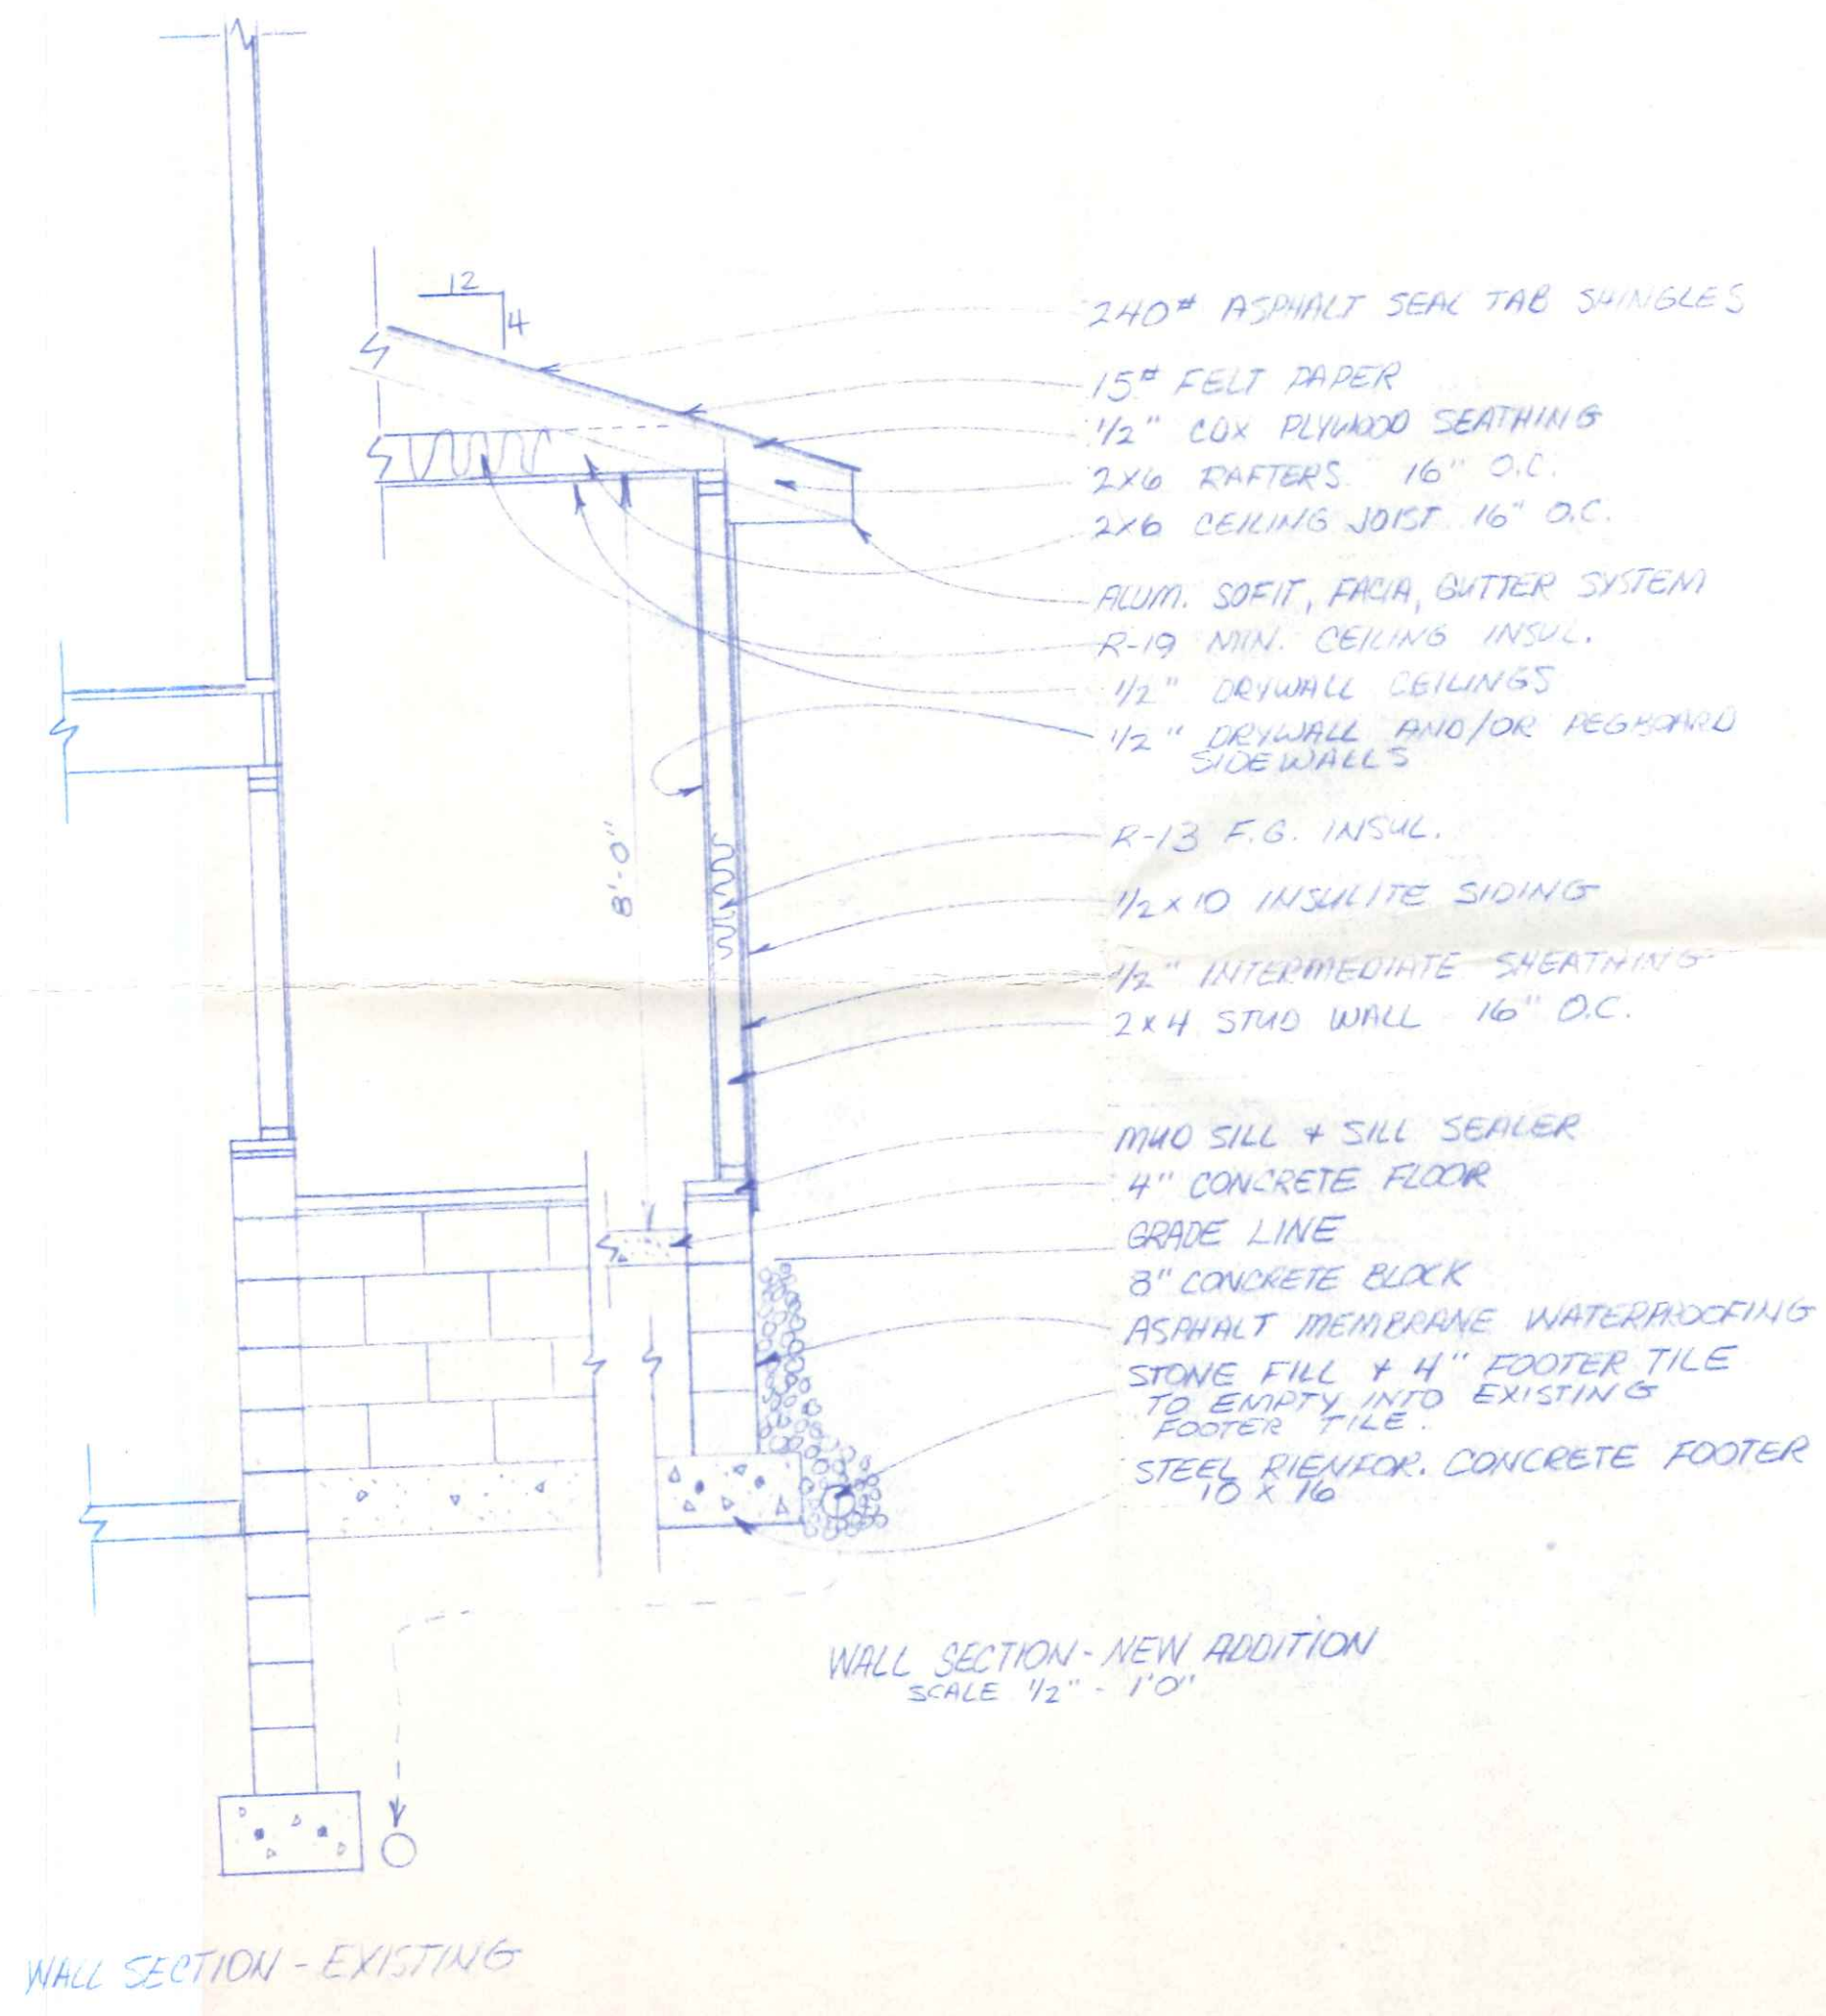 12
4
240# ASPHALT SEAL TAB SHINGLES
15# FELT PAPER
1/2" CDX PLYWOOD SEATHING
2x6 RAFTERS 16" O.C.
2x6 CEILING JOIST 16" O.C.
ALUM. SOFIT, FACIA, GUTTER SYSTEM
R-19 MIN. CEILING INSUL.
1/2" DRYWALL CEILINGS
1/2" DRYWALL AND/OR PEGBOARD
SIDEWALLS
8'-0"
R-13 F.G. INSUL.
1/2 x 10 INSULITE SIDING
1/2" INTERMEDIATE SHEATHING
2x4 STUD WALL 16" O.C.
MUD SILL & SILL SEALER
4" CONCRETE FLOOR
GRADE LINE
8" CONCRETE BLOCK
ASPHALT MEMBRANE WATERPROOFING
STONE FILL & 4" FOOTER TILE
TO EMPTY INTO EXISTING
FOOTER TILE.
STEEL RIENFOR. CONCRETE FOOTER
10 x 16
WALL SECTION - NEW ADDITION
SCALE 1/2" - 1'0"
WALL SECTION - EXISTING